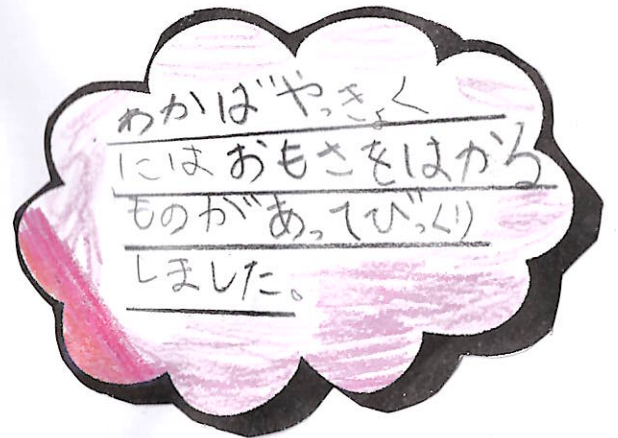 わかばやっきょく
にはおもさをはかる
ものがあってびっくり
しました。